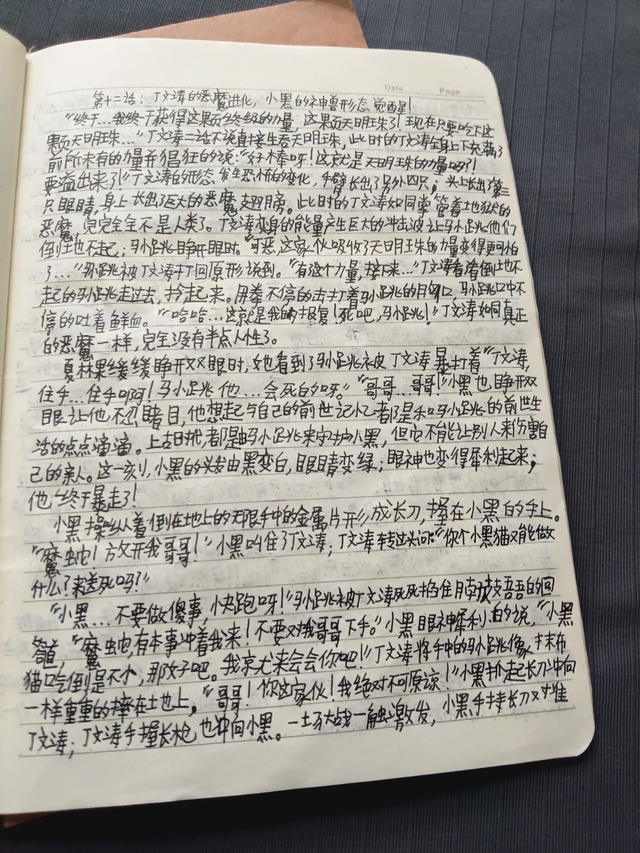 Date    Page
第十二话：丁文涛的恶魔进化，小黑的神兽形态觉醒！
“终于…我终于获得这果页终级的力量，这果页天明珠了！现在只要吃下这
颗天明珠…”丁文涛二话不说直接生吞天明珠，此时的丁文涛全身上下充满了
前所未有的力量并猖狂的说：“好棒呀！这就是天明珠的力量吗？！
要溢出来了！”丁文涛的形态发生恐怖的变化，手臂长出了另外四只，头上长出了第三
只眼睛，身上长出了巨大的恶魔翅膀。此时的丁文涛如同掌管着地狱的
恶魔，完完全全不是人类了。丁文涛变身的能量产生巨大的冲击波让马小跳他们
倒地不起；马小跳睁开眼时。“可恶，这家伙吸收了天明珠的力量变得更可怕
了…”马小跳被丁文涛打回原形说到。“有这个力量，接下来…”丁文涛看着倒地不
起的马小跳走过去，拎起来。用拳不停的击打着马小跳的胸口，马小跳口中不
停的吐着鲜血。“哈哈…这就是我的报复！死吧，马小跳！”丁文涛如同真正
的恶魔一样，完全没有半点人性了。
夏林果缓缓睁开双眼时，她看到了马小跳被丁文涛暴打着“丁文涛，
住手…住手啊！马小跳他…会死的呀。”“哥哥…哥哥！”小黑也睁开双
眼让他不忍睹目，他想起与自己的前世记忆都是和马小跳的前世生
活的点点滴滴。上古时代，都是马小跳来守护小黑，但它不能让别人来伤害自
己的亲人。这一刻，小黑的头发由黑变白，眼睛变绿；眼神也变得犀利起来；
他终于暴走了！
小黑操纵着倒在地上的无限手中的金属片形成长刀，握在小黑的手上。
“魔蛇！放开我哥哥！”小黑叫住了丁文涛；丁文涛转过头问：“你个小黑猫又能做
什么？来送死吗？”
“小黑…不要做傻事，快跑呀！”马小跳被丁文涛死死掐住脖支吾吾的回
答道，“魔蛇，有本事冲着我来！不要对我哥哥下手。”小黑眼神犀利的说，“小黑
猫吃倒是不小，那好吧。我就来会会你吧！”丁文涛将手中的马小跳像抹布
一样重重的摔在地上，“哥哥！你这家伙！我绝对不可原谅！”小黑抄起长刀冲向
丁文涛；丁文涛手握长枪，也冲向小黑。一场大战一触激发，小黑手持长刀对准